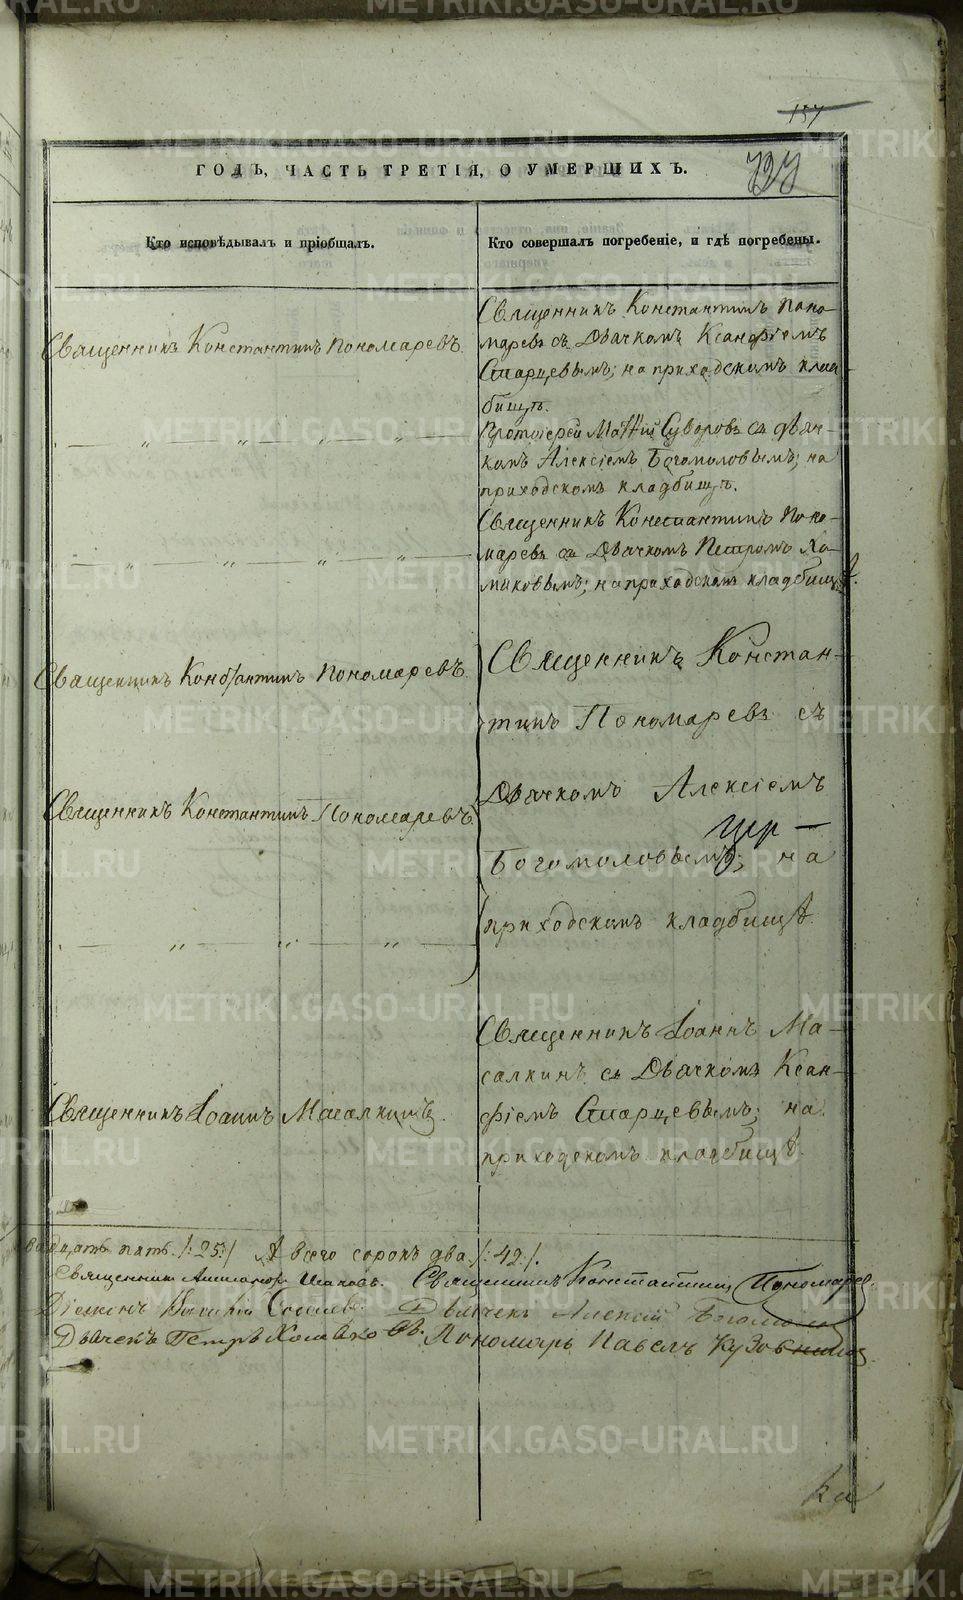 157
727
ГОДЪ, ЧАСТЬ ТРЕТІЯ, О УМЕРШИХЪ.
Кто исповѣдывалъ и пріобщалъ.
Кто совершалъ погребеніе, и гдѣ погребены.
Священникъ Константинъ Пономаревъ.
Священникъ Константинъ Поно-
маревъ съ Дьячкомъ Ксанфіемъ
Старцевымъ; на приходскомъ клад-
бищѣ.
— „ — „ — „ — „ —
Протоіерей Матѳій Суворовъ съ дьяч-
комъ Алексіемъ Богомоловымъ; на
приходскомъ кладбищѣ.
— „ — „ — „ — „ —
Священникъ Константинъ Поно-
маревъ съ Дьячкомъ Петромъ Хо-
миковымъ; на приходскомъ кладбищѣ.
Священникъ Константинъ Пономаревъ.
Священникъ Константинъ Пономаревъ.
— „ — „ — „ —
Священникъ Констан-
тинъ Пономаревъ съ
Дьячкомъ Алексіемъ
Богомоловымъ; на
приходскомъ кладбищѣ.
Священникъ Іоаннъ Масалкинъ.
Священникъ Іоаннъ Ма-
салкинъ съ Дьячкомъ Ксан-
фіемъ Старцевымъ; на
приходскомъ кладбищѣ.
двадцать пять /:25:/ А всего сорокъ два /:42:/.
Священникъ Исаковъ. Священникъ Константинъ Пономаревъ
Діаконъ Василій Дьячекъ Алексій
Дьячекъ Петръ Пономарь Павелъ
METRIKI.GASO-URAL.RU